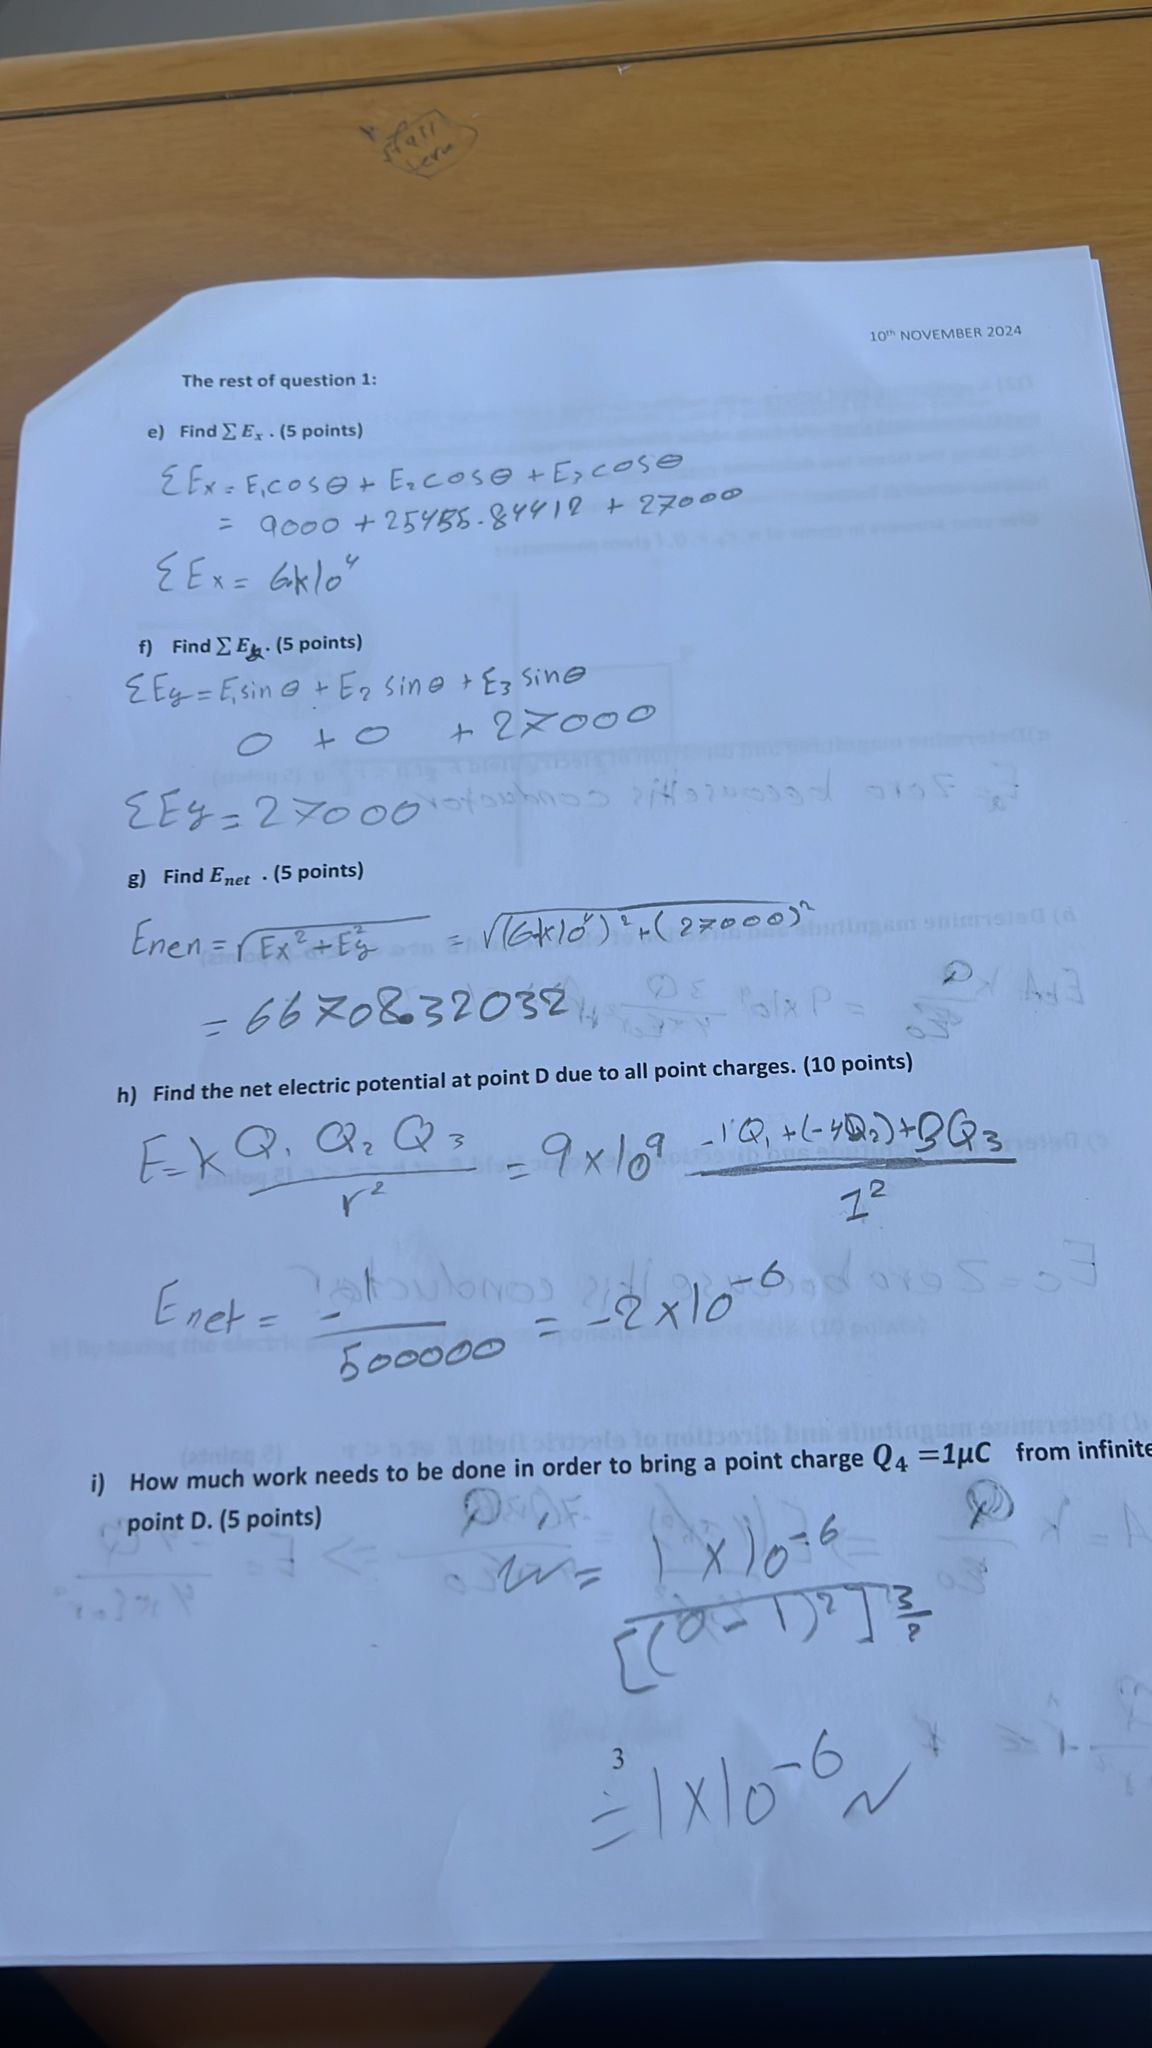 10th NOVEMBER 2024
The rest of question 1:
e) Find ∑ Ex . (5 points)
ΣEx = E1cosθ + E2cosθ + E3cosθ
= 9000 + 25455.84412 + 27000
ΣEx = 6x10^4
f) Find ∑ Ey. (5 points)
ΣEy = E1sinθ + E2 sinθ + E3 sinθ
0 + 0 + 27000
ΣEy = 27000
g) Find Enet . (5 points)
Enen = √Ex² + Ey² = √(6x10^4)² + (27000)²
= 66708.32032
h) Find the net electric potential at point D due to all point charges. (10 points)
E = k Q1 Q2 Q3 / r² = 9 x 10^9 -1Q1 + (-4Q2) + 3Q3 / 1²
Enet = -1 / 500000 = -2 x 10^-6
i) How much work needs to be done in order to bring a point charge Q4 =1µC from infinite
point D. (5 points)
= 1 x 10^-6 / [(0-1)²]^3/2
3
= 1x10^-6 N